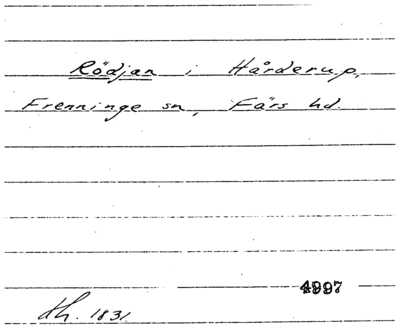 Rödjan i Hårderup,
Frenninge sn, Färs hd.
4997
1831